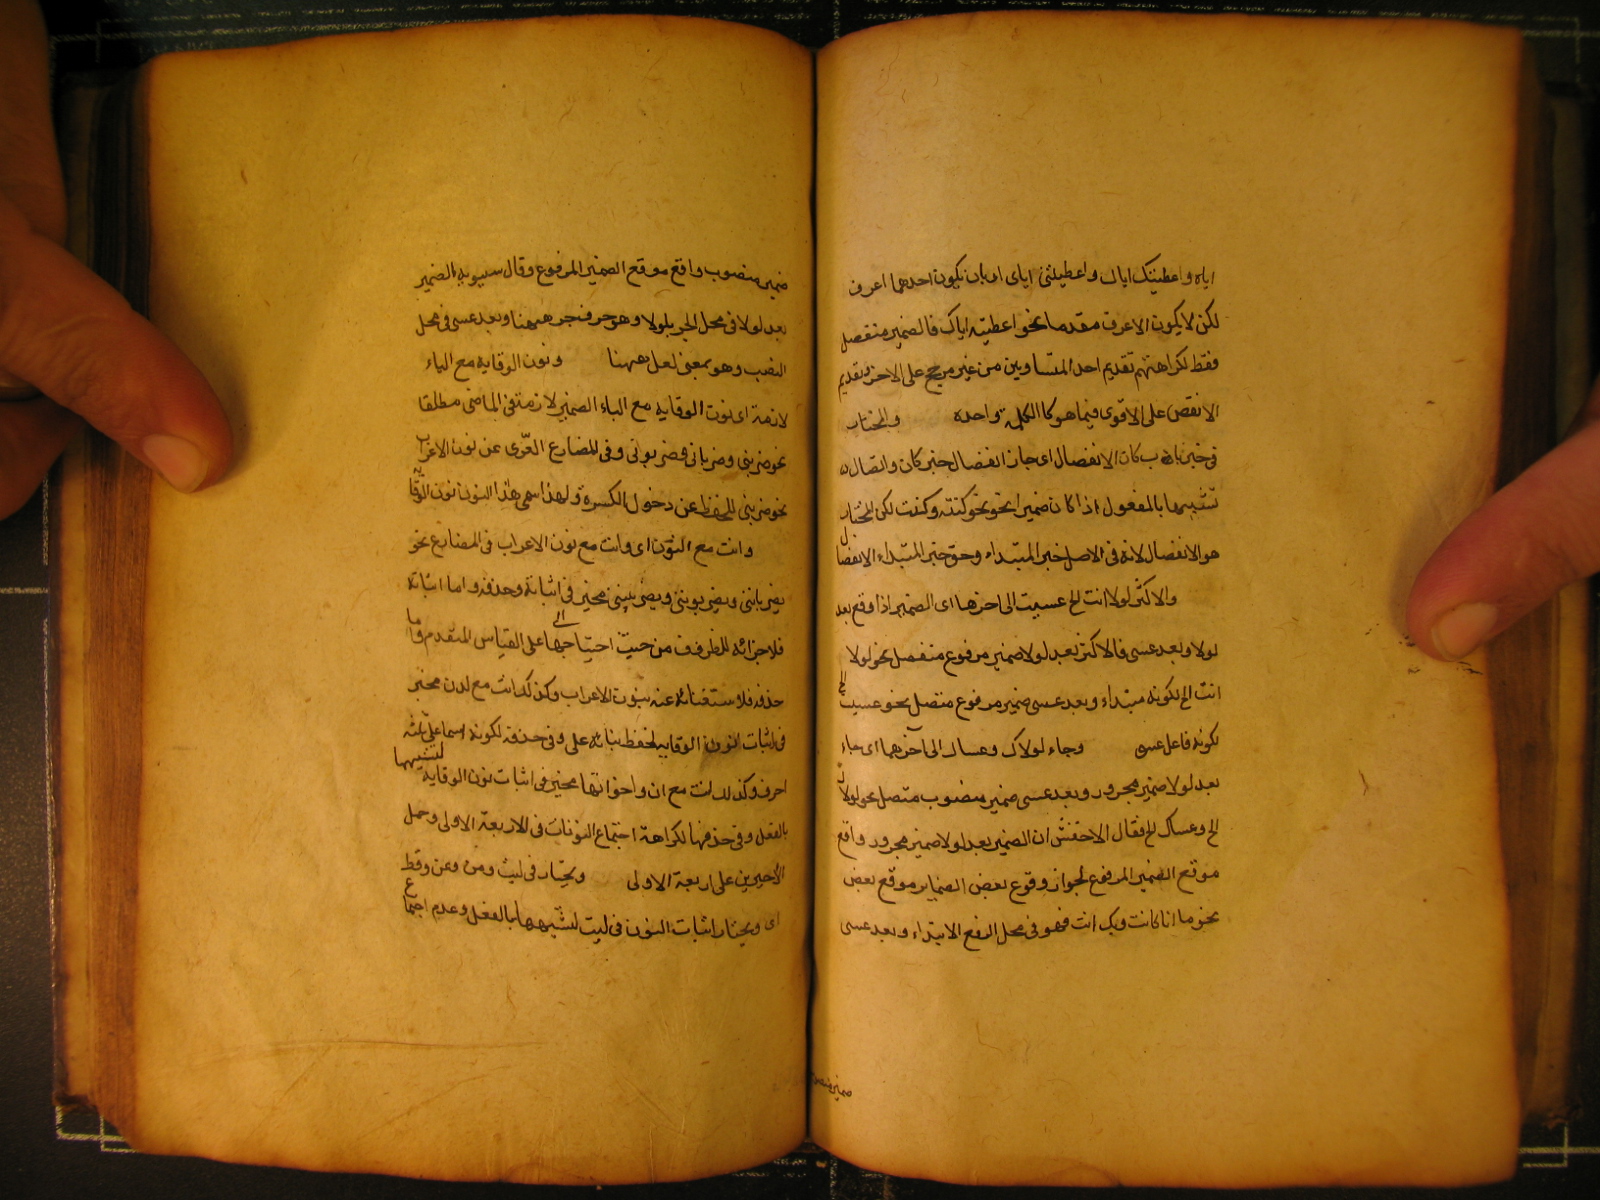 اياه واعطيتك اياك واعطيتني اياي او بان يكون احدهما اعرف
لكن لا يكون الاعرف مقدما نحو اعطيته اياك فالضمير منفصل
فقط لكراهتهم تقديم احد المتساويين من غير مرجح على الاخر وتقديم
الانقص على الاقوى فيما هو كالكلمة واحدة والمختار
في خبر باب كان الانفصال اى جاز انفصال خبر كان واتصاله
تشبيها بالمفعول اذا كان ضميرا نحو نحو كنته وكنت لكن المختار
هو الانفصال لانه في الاصل خبر المبتداء وحق خبر المبتداء الانفصال
والاكثر لولا انت الخ عسيت الى اخرها اى الضمير اذا وقع بعد
لولا وبعد عسى فالاكثر بعد لولا ضمير مرفوع منفصل نحو لولا
انت الخ لكونه مبتداء وبعد عسى ضمير مرفوع متصل نحو عسيت الخ
لكونه فاعل عسى وجاء لولاك وعساك الى آخرهما اى جاء
بعد لولا ضمير مجرور وبعد عسى ضمير منصوب متصل نحو لولاك
الخ وعساك الخ فقال الاخفش ان الضمير بعد لولا ضمير مجرور واقع
موقع الضمير المرفوع لجواز وقوع بعض الضماير موقع بعض
نحو ما انا كانت وبك انت فهو في محل الرفع الابتداء وبعد عسى
ضمير منصوب
ضمير منصوب واقع موقع الضمير المرفوع وقال سيبويه الضمير
بعد لولا في محل الجر بلولا وهو حرف جر ههنا وبعد عسى في محل
النصب وهو بمعنى لعل ههنا ونون الوقاية مع الياء
لازمة اى نون الوقاية مع الياء الضمير لازمة في الماضى مطلقا
نحو ضربنى وضربانى وضربونى وفى المضارع العرى عن نون الاعراب
نحو ضربنى للحفظ عن دخول الكسرة ولهذا سمى هذا النون نون الوقاية
وانت مع النون اى وانت مع نون الاعراب في المضارع نحو
يضرباننى ويضربوننى وتضربيننى مخير في اثباته وحذفه واما اثباته
فلاجرائه للطرف من حيث احتياجها الى على القياس المتقدم واما
حذفه فلاستغنائه عنه بنون الاعراب وكذلك انت مع لدن مخير
في اثبات النون الوقاية لحفظ بنائه على وفى حذفه لكونه اسما على ثلثة
احرف وكذلك انت مع ان واخواتها مخير في اثبات نون الوقاية لتشبيهها
بالفعل وفى حذفها لكراهة اجتماع النونات في الاربعة الاولى وحمل
الاخيرين على اربعة الاولى ويختار في ليت ومن وعن وقط
اى ويختار اثبات النون في ليت لتشبهها بالفعل وعدم اجتماع